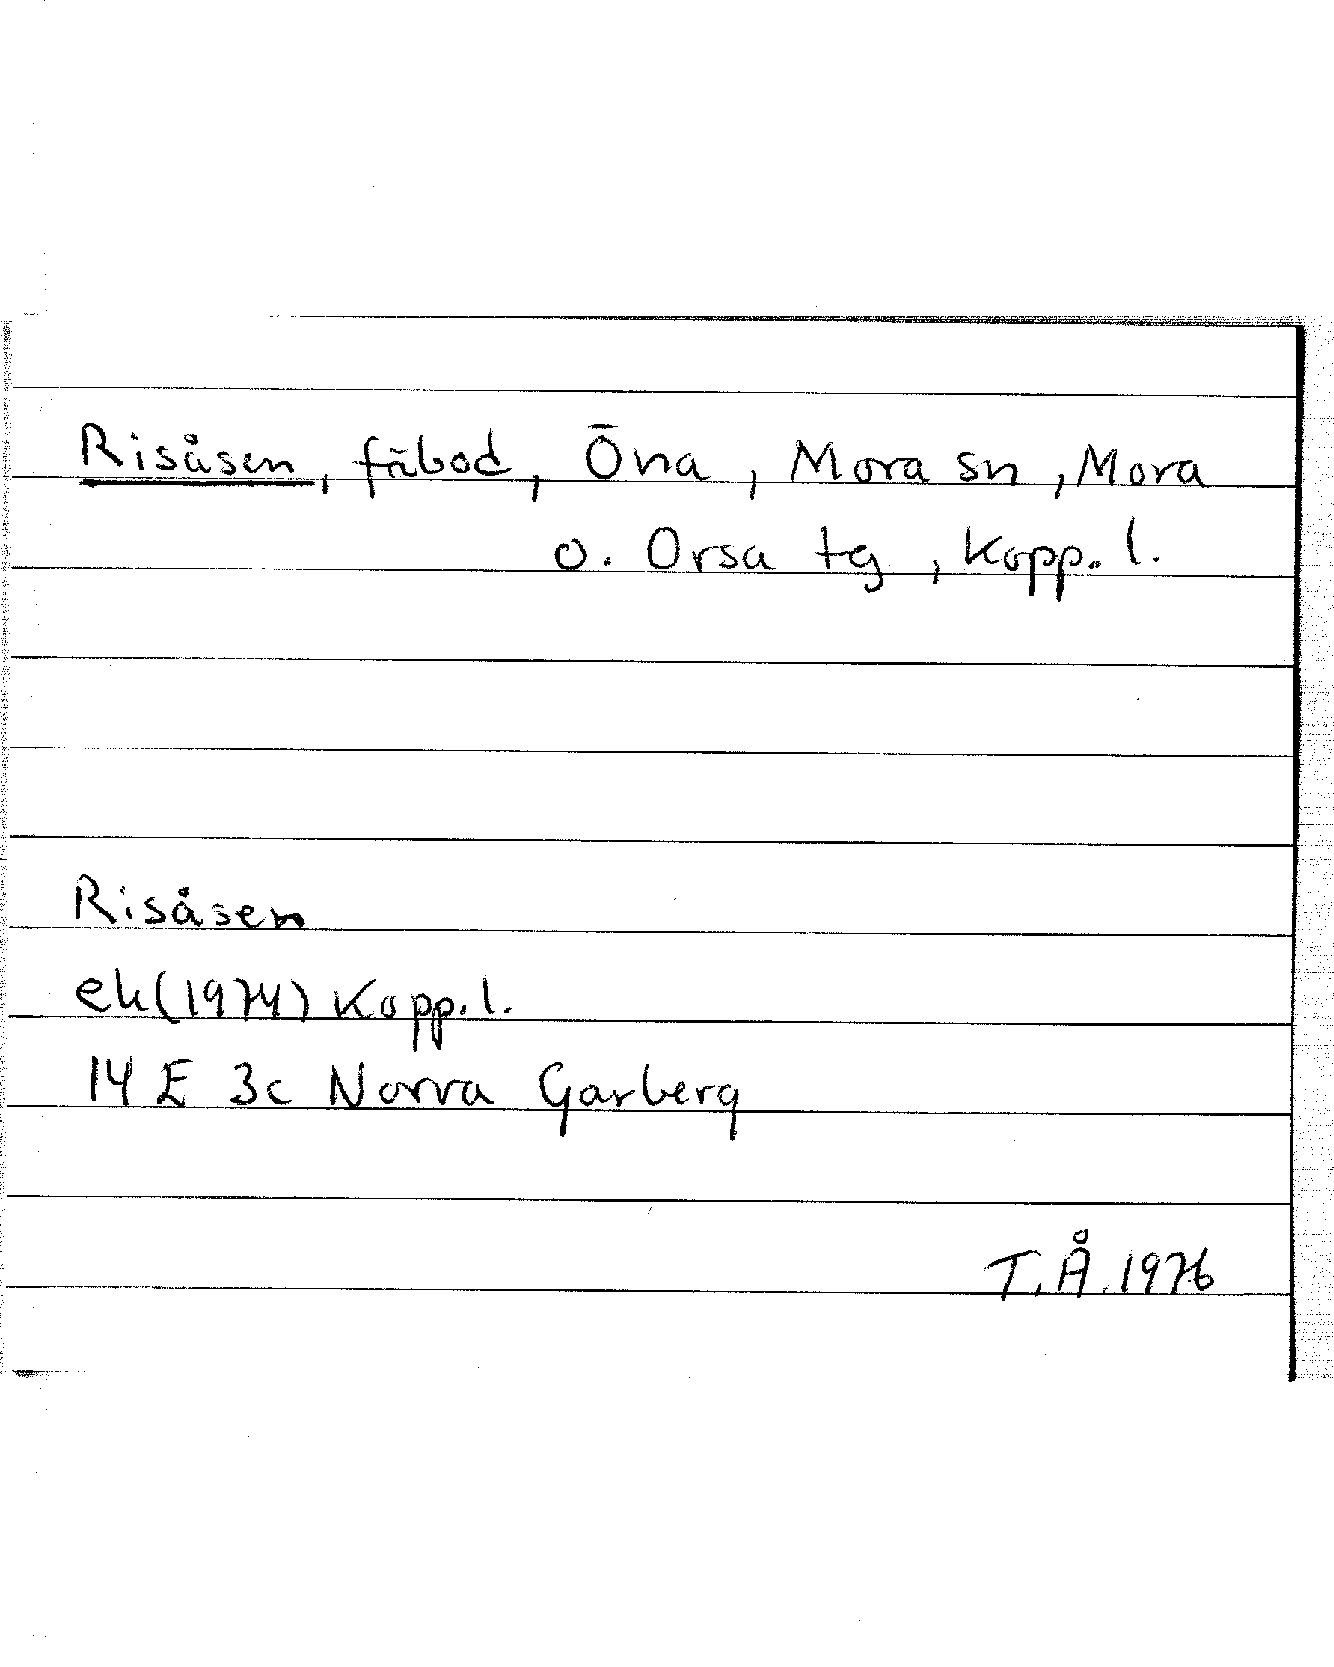 Risåsen, fäbod, Öna, Mora sn, Mora
o. Orsa tg, Kopp. l.
Risåsen
ek (1974) Kopp. l.
14 E 3c Norra Garberg
T. Å. 1976